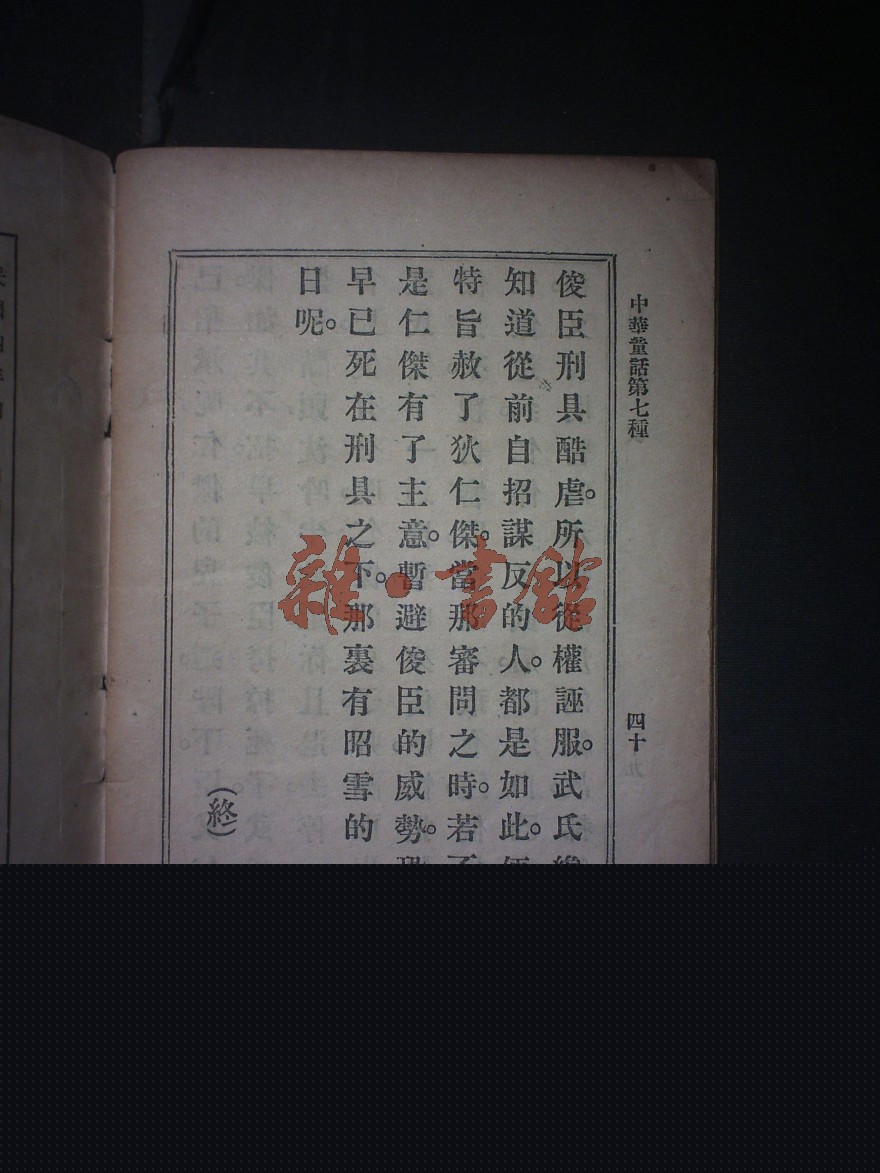 中華童話第七種
四十
俊臣刑具酷虐。所以從權誣服。武氏纔
知道從前自招謀反的人。都是如此。
特旨赦了狄仁傑。當那審問之時。若
是仁傑有了主意。暫避俊臣的威勢。
早已死在刑具之下。那裏有昭雪的
日呢。
(終)
雜·書館